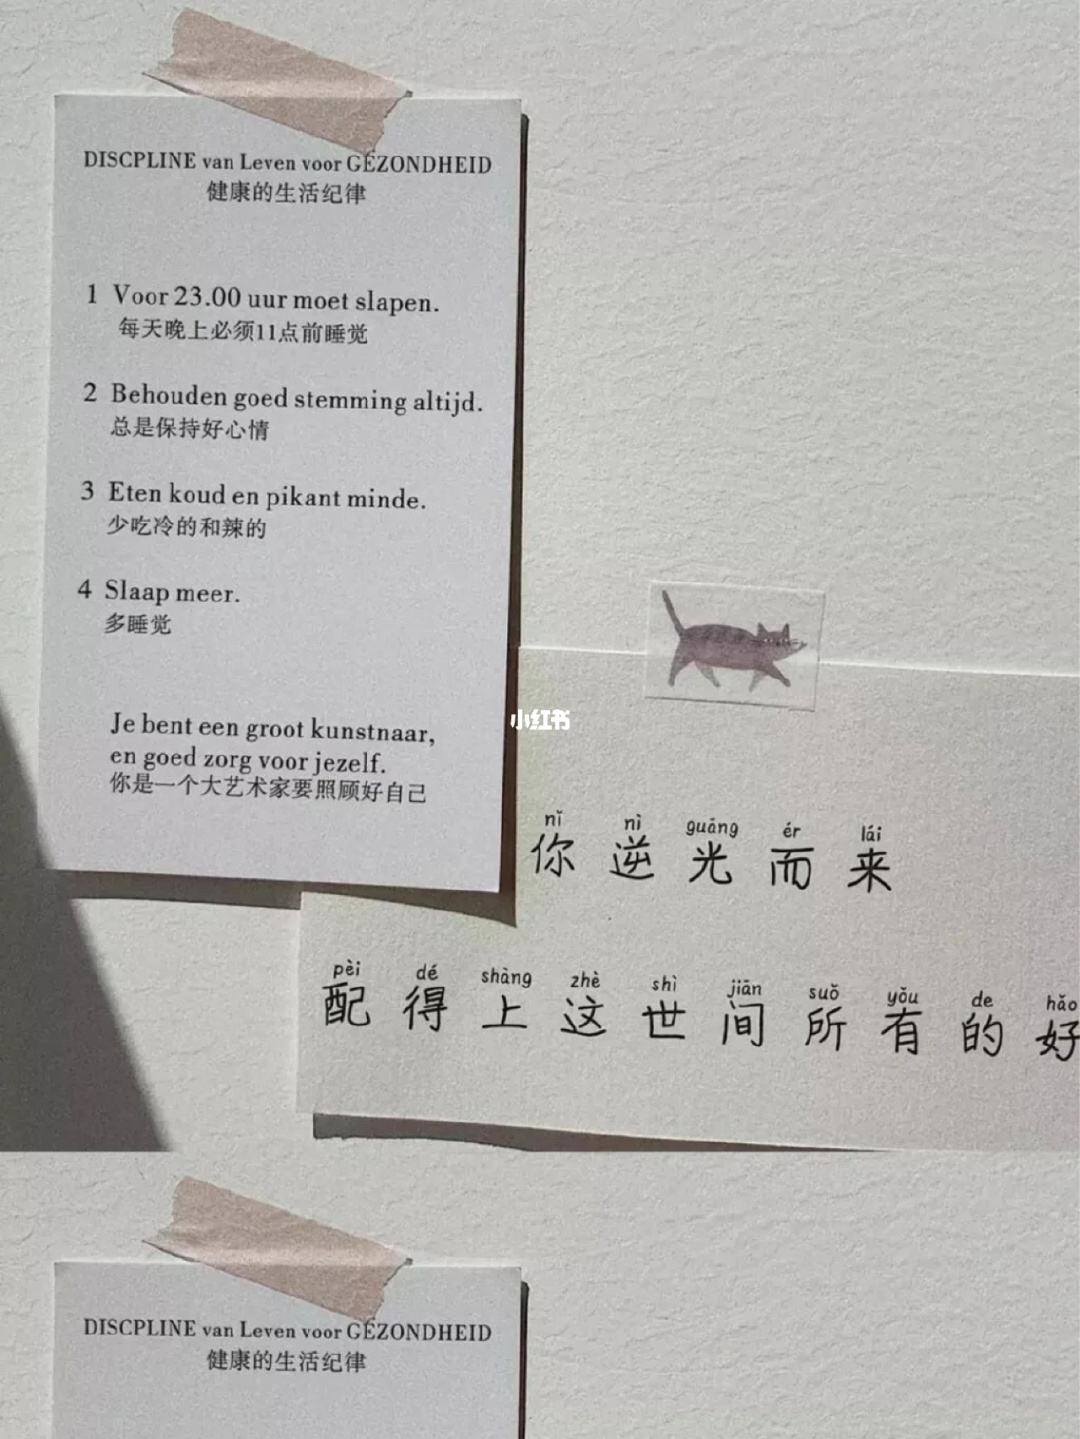 DISCPLINE van Leven voor GEZONDHEID
健康的生活纪律
1 Voor 23.00 uur moet slapen.
每天晚上必须11点前睡觉
2 Behouden goed stemming altijd.
总是保持好心情
3 Eten koud en pikant minde.
少吃冷的和辣的
4 Slaap meer.
多睡觉
Je bent een groot kunstnaar,
en goed zorg voor jezelf.
你是一个大艺术家要照顾好自己
小红书
nǐ nì guāng ér lái
你逆光而来
pèi dé shàng zhè shì jiān suǒ yǒu de hǎo
配得上这世间所有的好
DISCPLINE van Leven voor GEZONDHEID
健康的生活纪律